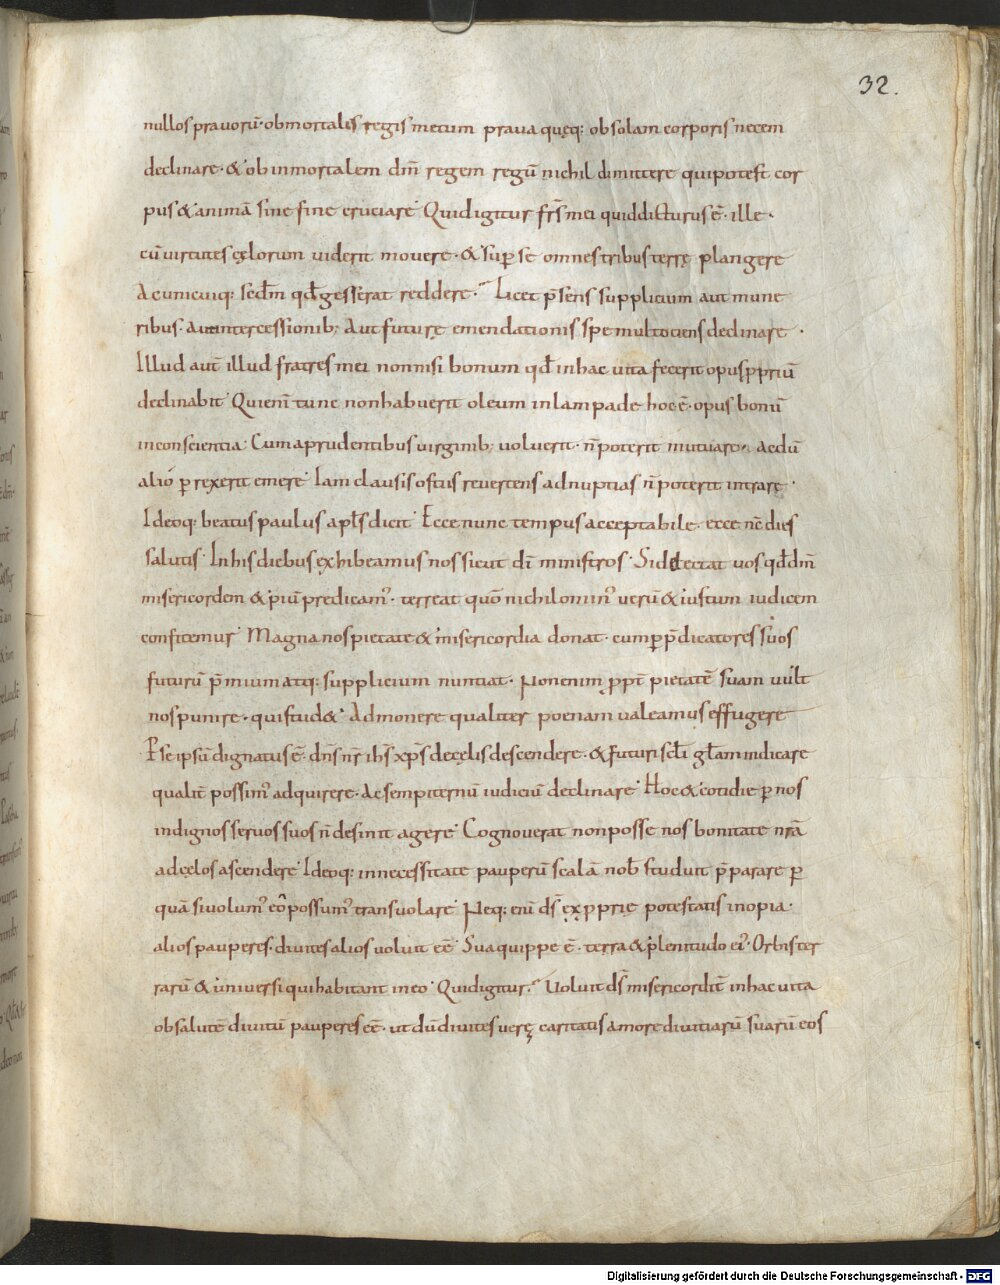 32.
nullos pravorū· ob mortalis regis metum prava quęq: ob solam corporis necem
declinare· & ob inmortalem dm̄ regem regū nichil dimittere qui potest cor
pus & animā sine fine cruciare· Quid igitur frs̄ mei quid dicturus ē· ille·
cū virtutes cęlorum viderit movere· & sup̄ se omnes tribus terrę plangere
Ac unicuiq: secdm̄ qd̄ gesserat reddere· Licet p̄sens supplicium aut mune
ribus· Aut intercessionib; Aut futurę emendationis spe multociens declinare·
Illud aut̄ illud fratres mei non nisi bonum qd̄ in hac vita fecerit opus ꝓpriū
declinabit· Qui eni tunc non habuerit oleum in lampade hoc ē· opus bonū
in conscientia· Cum a prudentibus virginib; voluerit· n̄ poterit mutuare· ac dū
alio p̄rexerit emere· Iam clausis ostiis revertens ad nuptias n̄ poterit intrarę·
Ideoq: beatus paulus apl̄s dicit· Ecce nunc tempus acceptabile· ecce nc̄ dies
salutis· In his diebus exhibeamus nos sicut dī ministros· Si delectat vos qd̄ dm̄
misericordem & piū predicam᾿· terreat quō nichilomin᾿ verū & iustum iudicem
confitemur· Magna nos pietate & misericordia donat· cum p̄ p̄dicatores suos
futurū p̄mium atq: supplicium nuntiat· Non enim ꝓpt̄ pietatē suam vult
nos punire· qui stud& Admonere qualiter poenam valeamus effugere
Pse ipsū dignatus ē· dn̄s nr̄ ih̄s xp̄s de cęlis descendere· & futuri scl̄i gl̄am indicare
qualit̄ possim᾿ adquirere· Ac sempiternū iudiciū declinare· Hoc & cotidie p̄ nos
indignos servos suos n̄ desinit agere· Cognoverat non posse nos bonitate nrā
ad cęlos ascendere· Ideoq: in necessitate pauperū scalā nob̄ studuit p̄parare p̄
quā si volum᾿ eo possum᾿ transvolare· Neq: eni ds̄ ex ꝓprię potestatis inopia·
alios pauperes· divites alios voluit eē· Sua quippe ē· terra & plenitudo ei᾿· Orbis ter
rarū & universi qui habitant in eo· Quid igitur· Voluit ds̄ misericordit̄ in hac vita
ob salutē divitū pauperes eē· ut dū divites verę caritatis amore divitiarū suarū eos
Digitalisierung gefördert durch die Deutsche Forschungsgemeinschaft - DFG